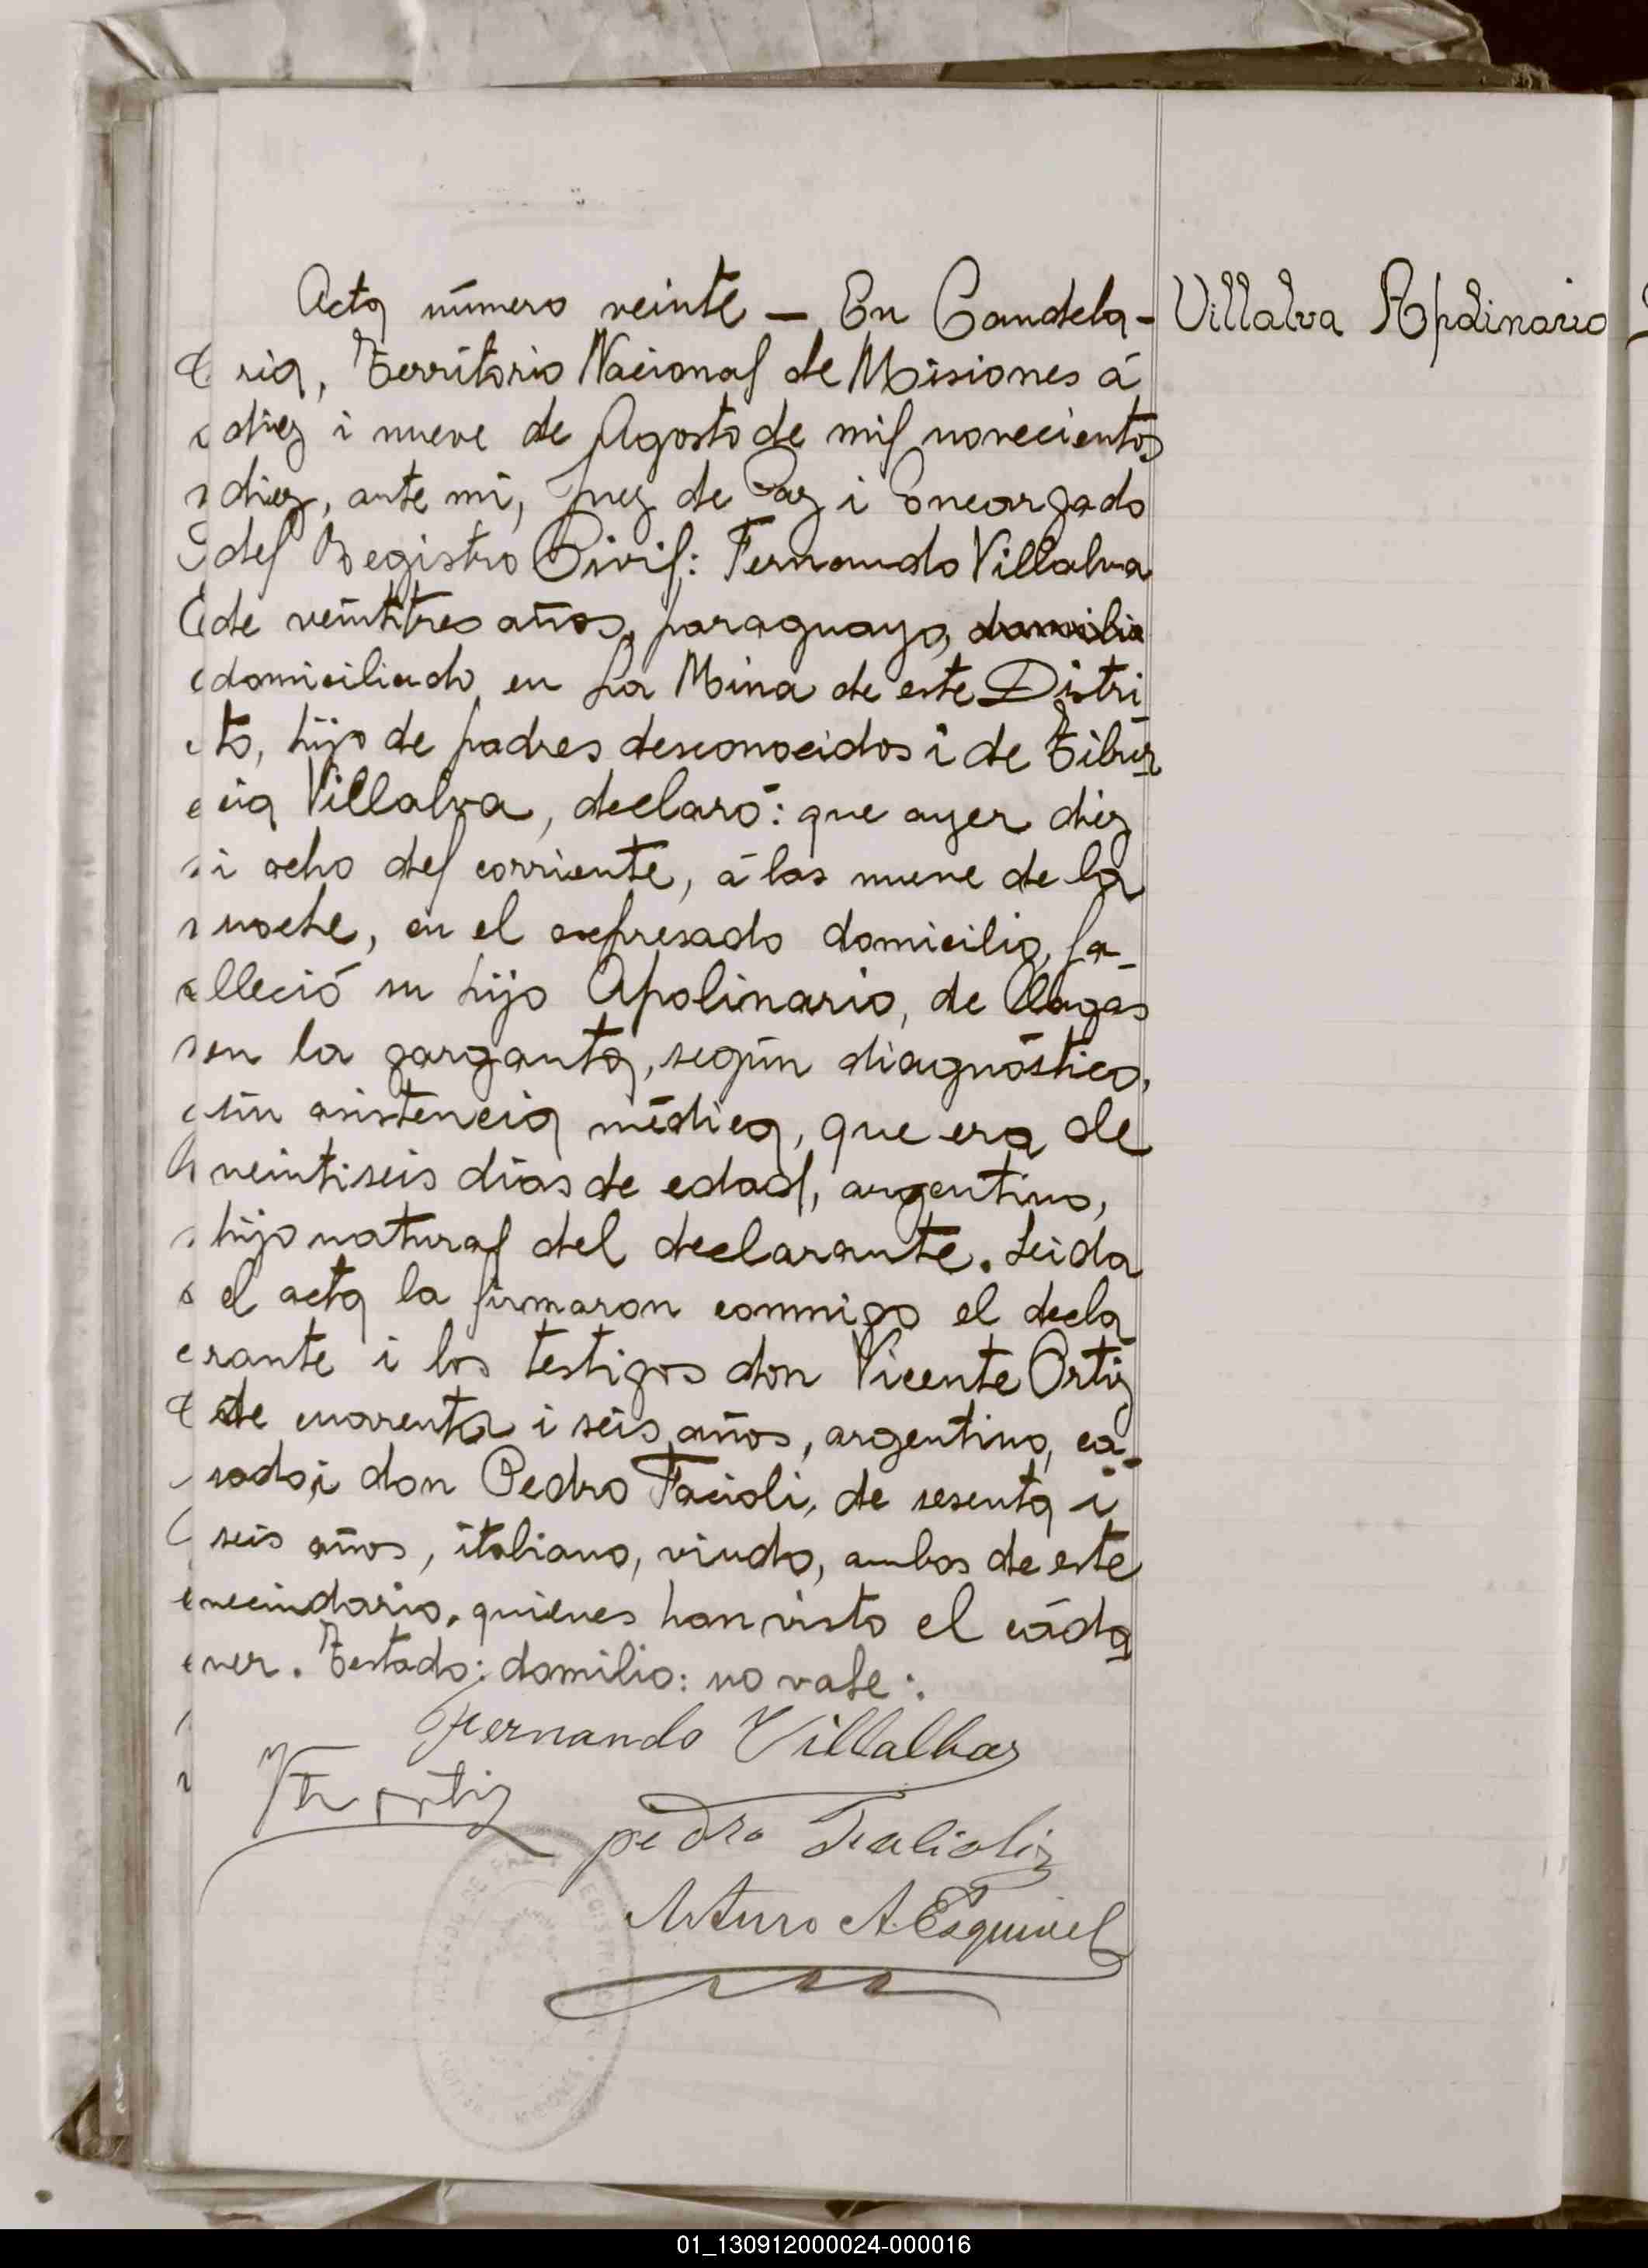 Acta número veinte — En Candela- Villalva Apolinario
ria, Territorio Nacional de Misiones á
diez i nueve de Agosto de mil novecientos
diez, ante mi, Juez de Paz i Encargado
del Registro Civil: Fernando Villalva
de veintitres años, paraguayo, domicilia
domiciliado en La Mina de este Distri
to, hijo de padres desconocidos i de Tibur
cia Villalva, declaró: que ayer diez
i ocho del corriente, á las nueve de la
noche, en el expresado domicilio, fa-
lleció su hijo Apolinario, de llagas
en la garganta, según diagnóstico,
sin asistencia médica, que era de
veintiseis días de edad, argentino,
hijo natural del declarante. Leida
el acta la firmaron conmigo el decla
rante i los testigos don Vicente Ortiz
de cuarenta i seis años, argentino, ca-
sado, i don Pedro Facioli, de sesenta i
seis años, italiano, viudo, ambos de este
vecindario, quienes han visto el cáda
ver. Testado: domilio: no vale:.
Fernando Villalbas
Vte Ortiz
pedro Facioli
Arturo A. Esquivel
01_130912000024-000016